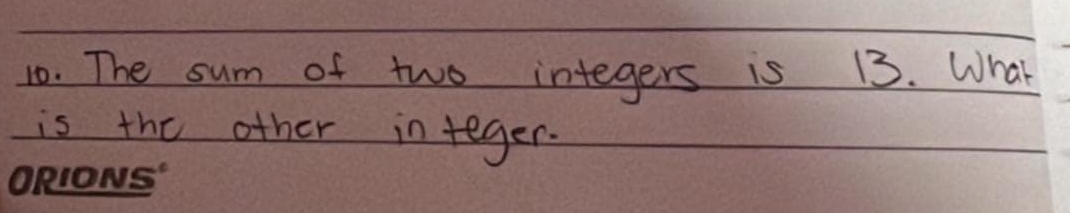 10. The sum of two integers is 13. What
is the other integer.
ORIONS®